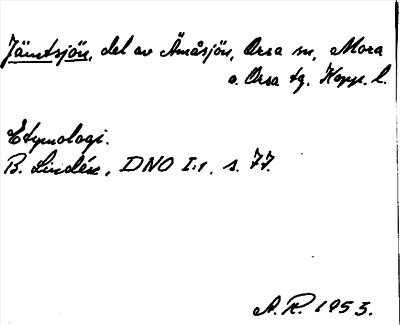 Jämtsjön, del av Ämåsjön, Orsa sn, Mora
o. Orsa tg. Kopp. l.
Etymologi.
B. Lindén, DNO I:1, s. 77.
A.R. 1953.